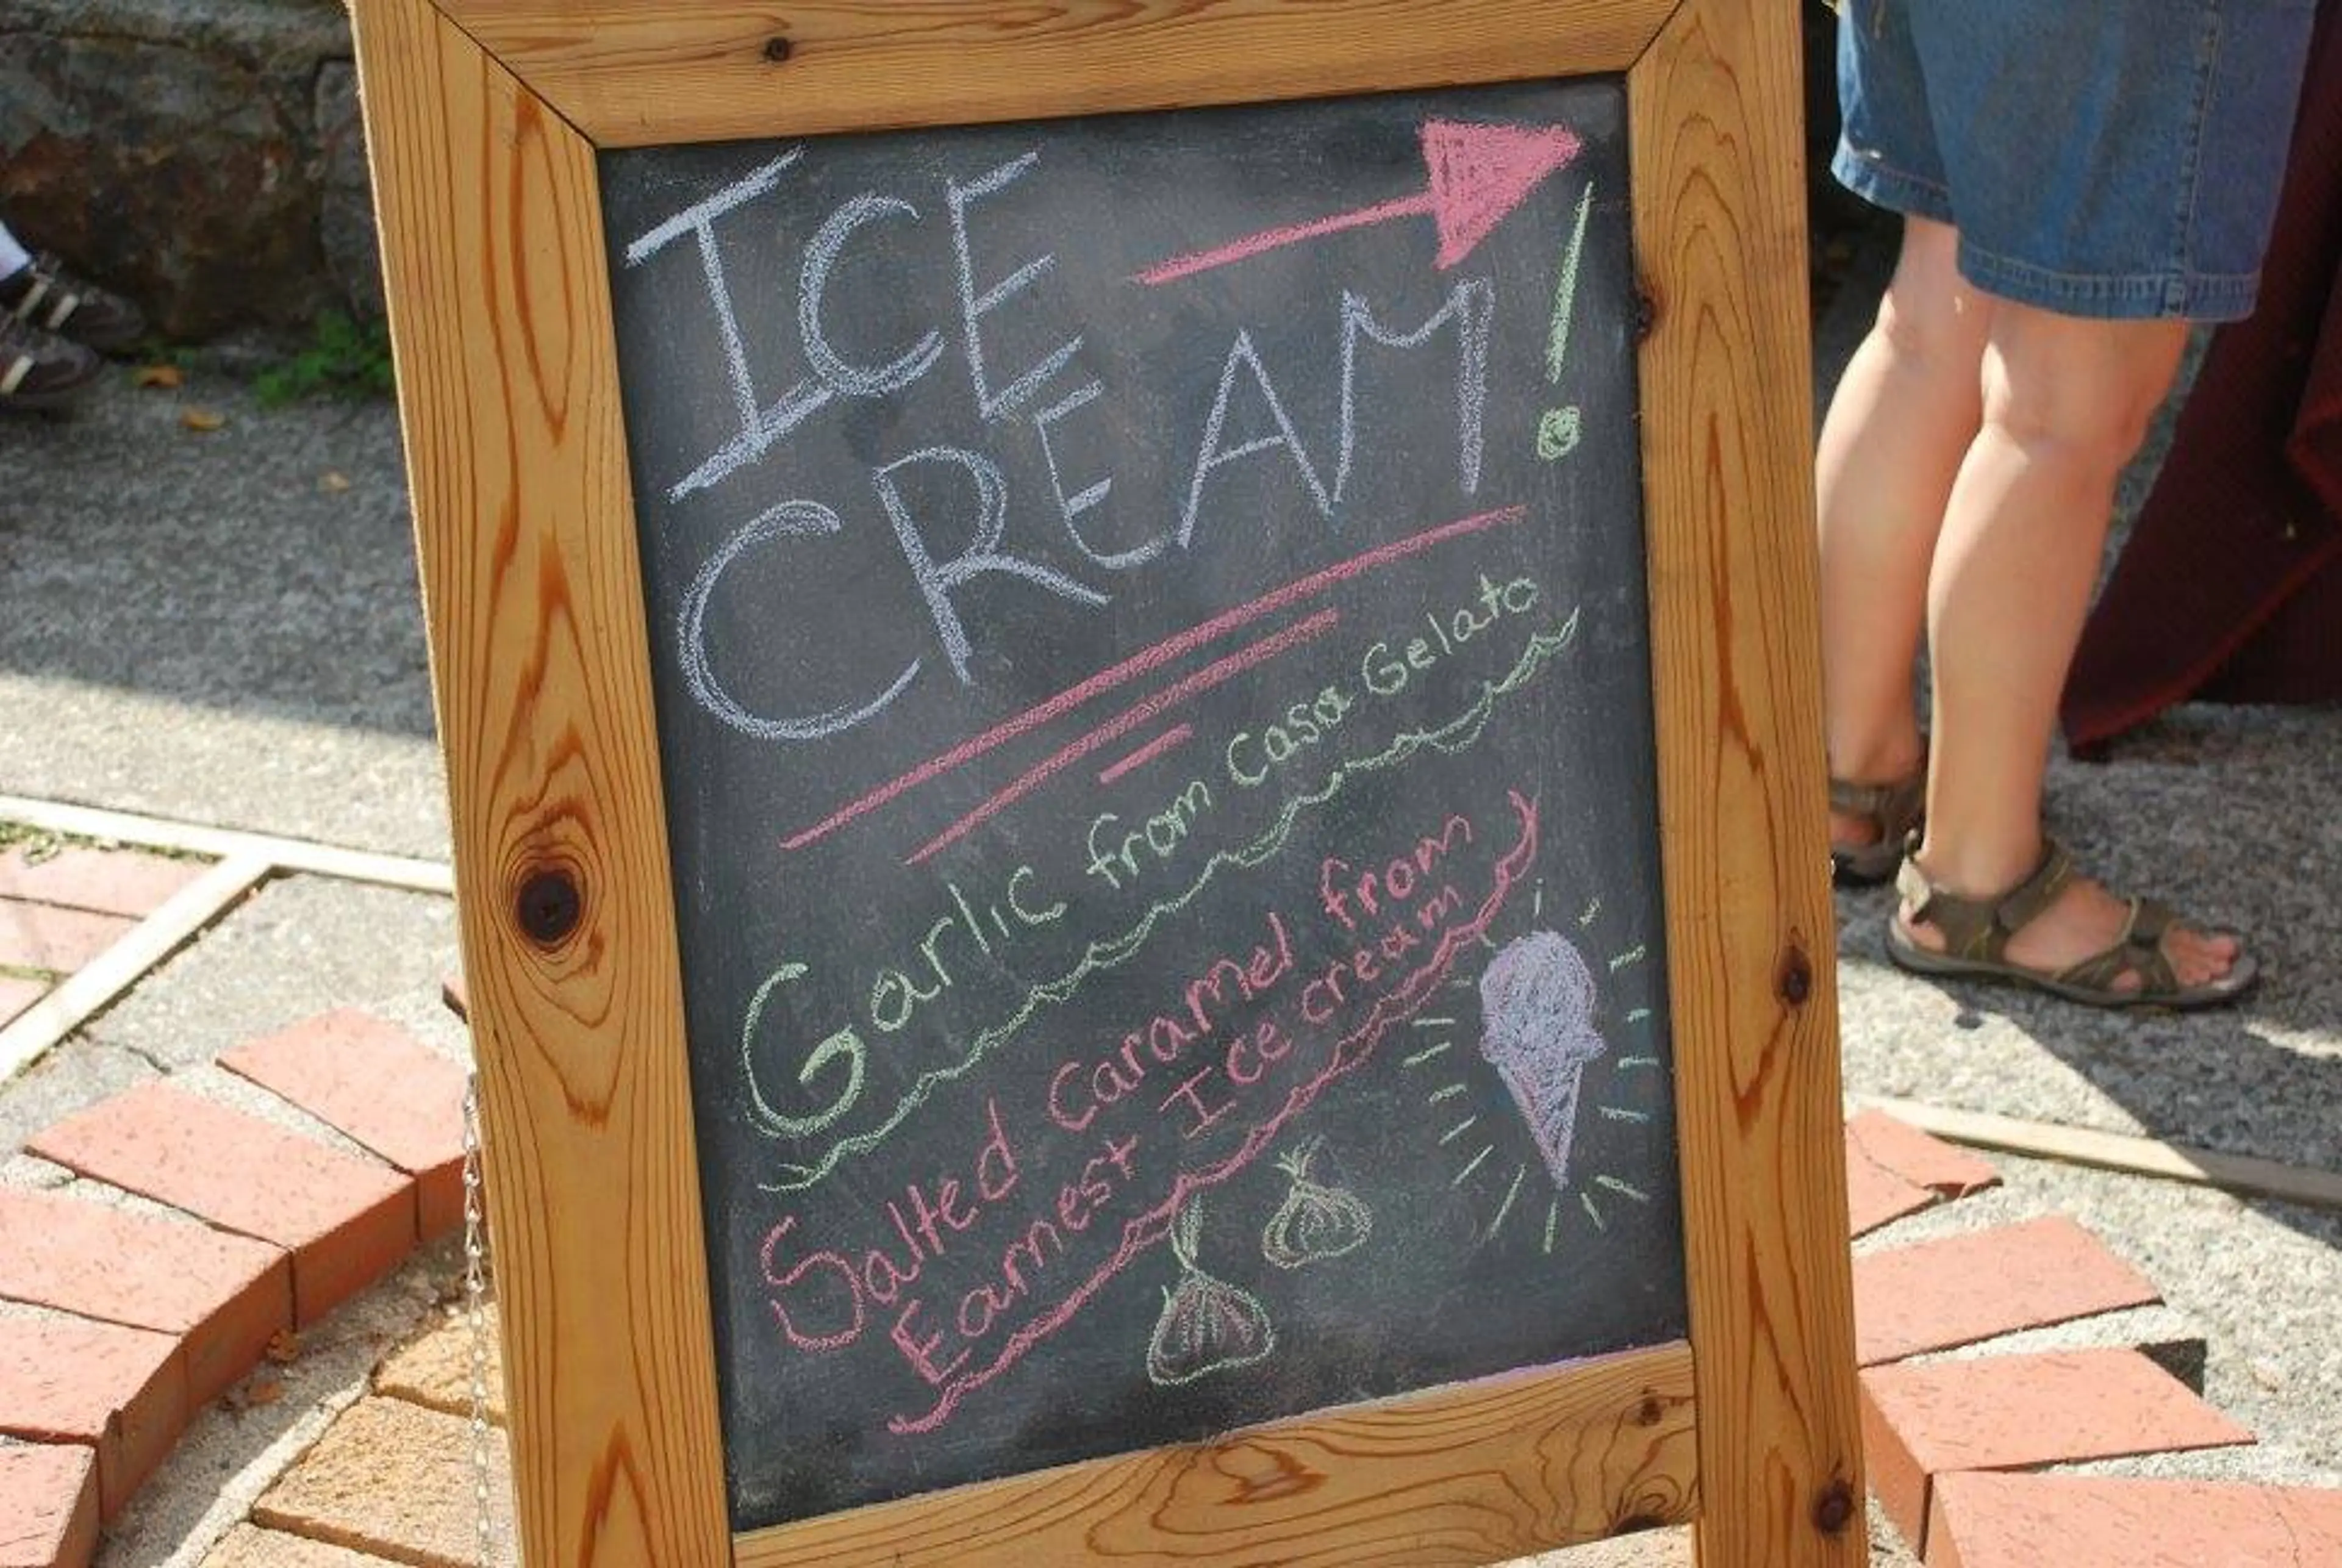 ICE
CREAM!
Garlic from Casa Gelato
Salted Caramel from
Earnest Ice cream